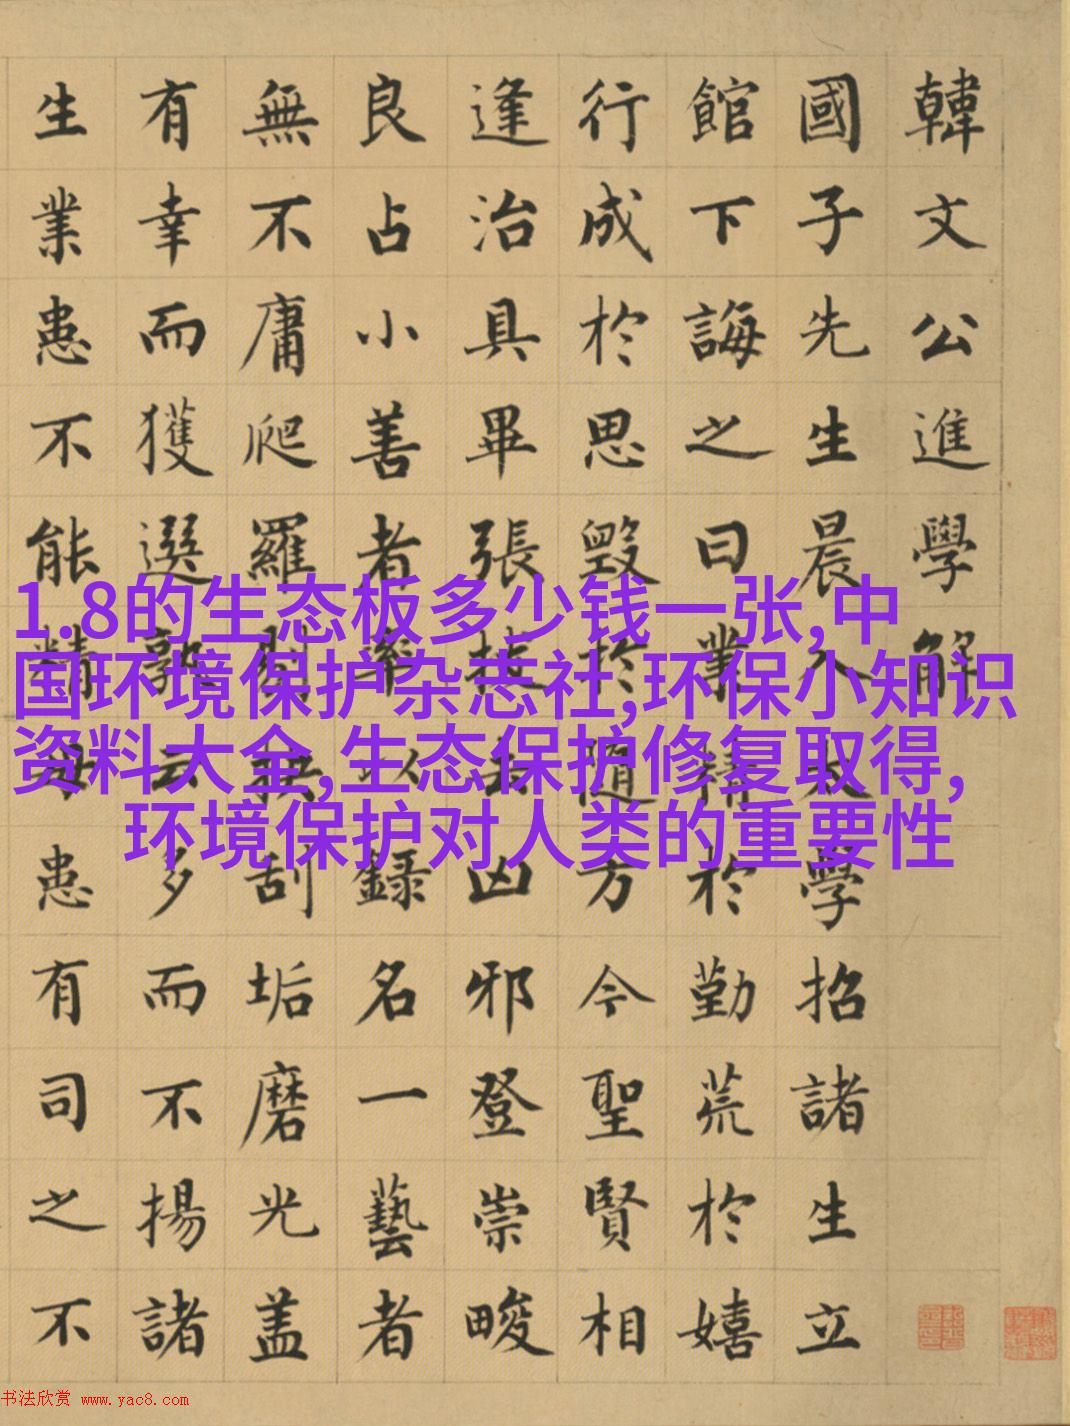 韓文公進學解
國子先生晨入太學招諸生立
館下誨之曰業精於勤荒於嬉
行成於思毀於隨方今聖賢相
逢治具畢張拔去凶邪登崇畯
良占小善者率以錄名一藝者
無不庸爬羅剔抉刮垢磨光盖
有幸而獲選孰云多而不揚諸
生業患不能精毋患有司之不
1.8的生态板多少钱一张,中
国环境保护杂志社,环保小知识
资料大全,生态保护修复取得,
环境保护对人类的重要性
书法欣赏 www.yac8.com